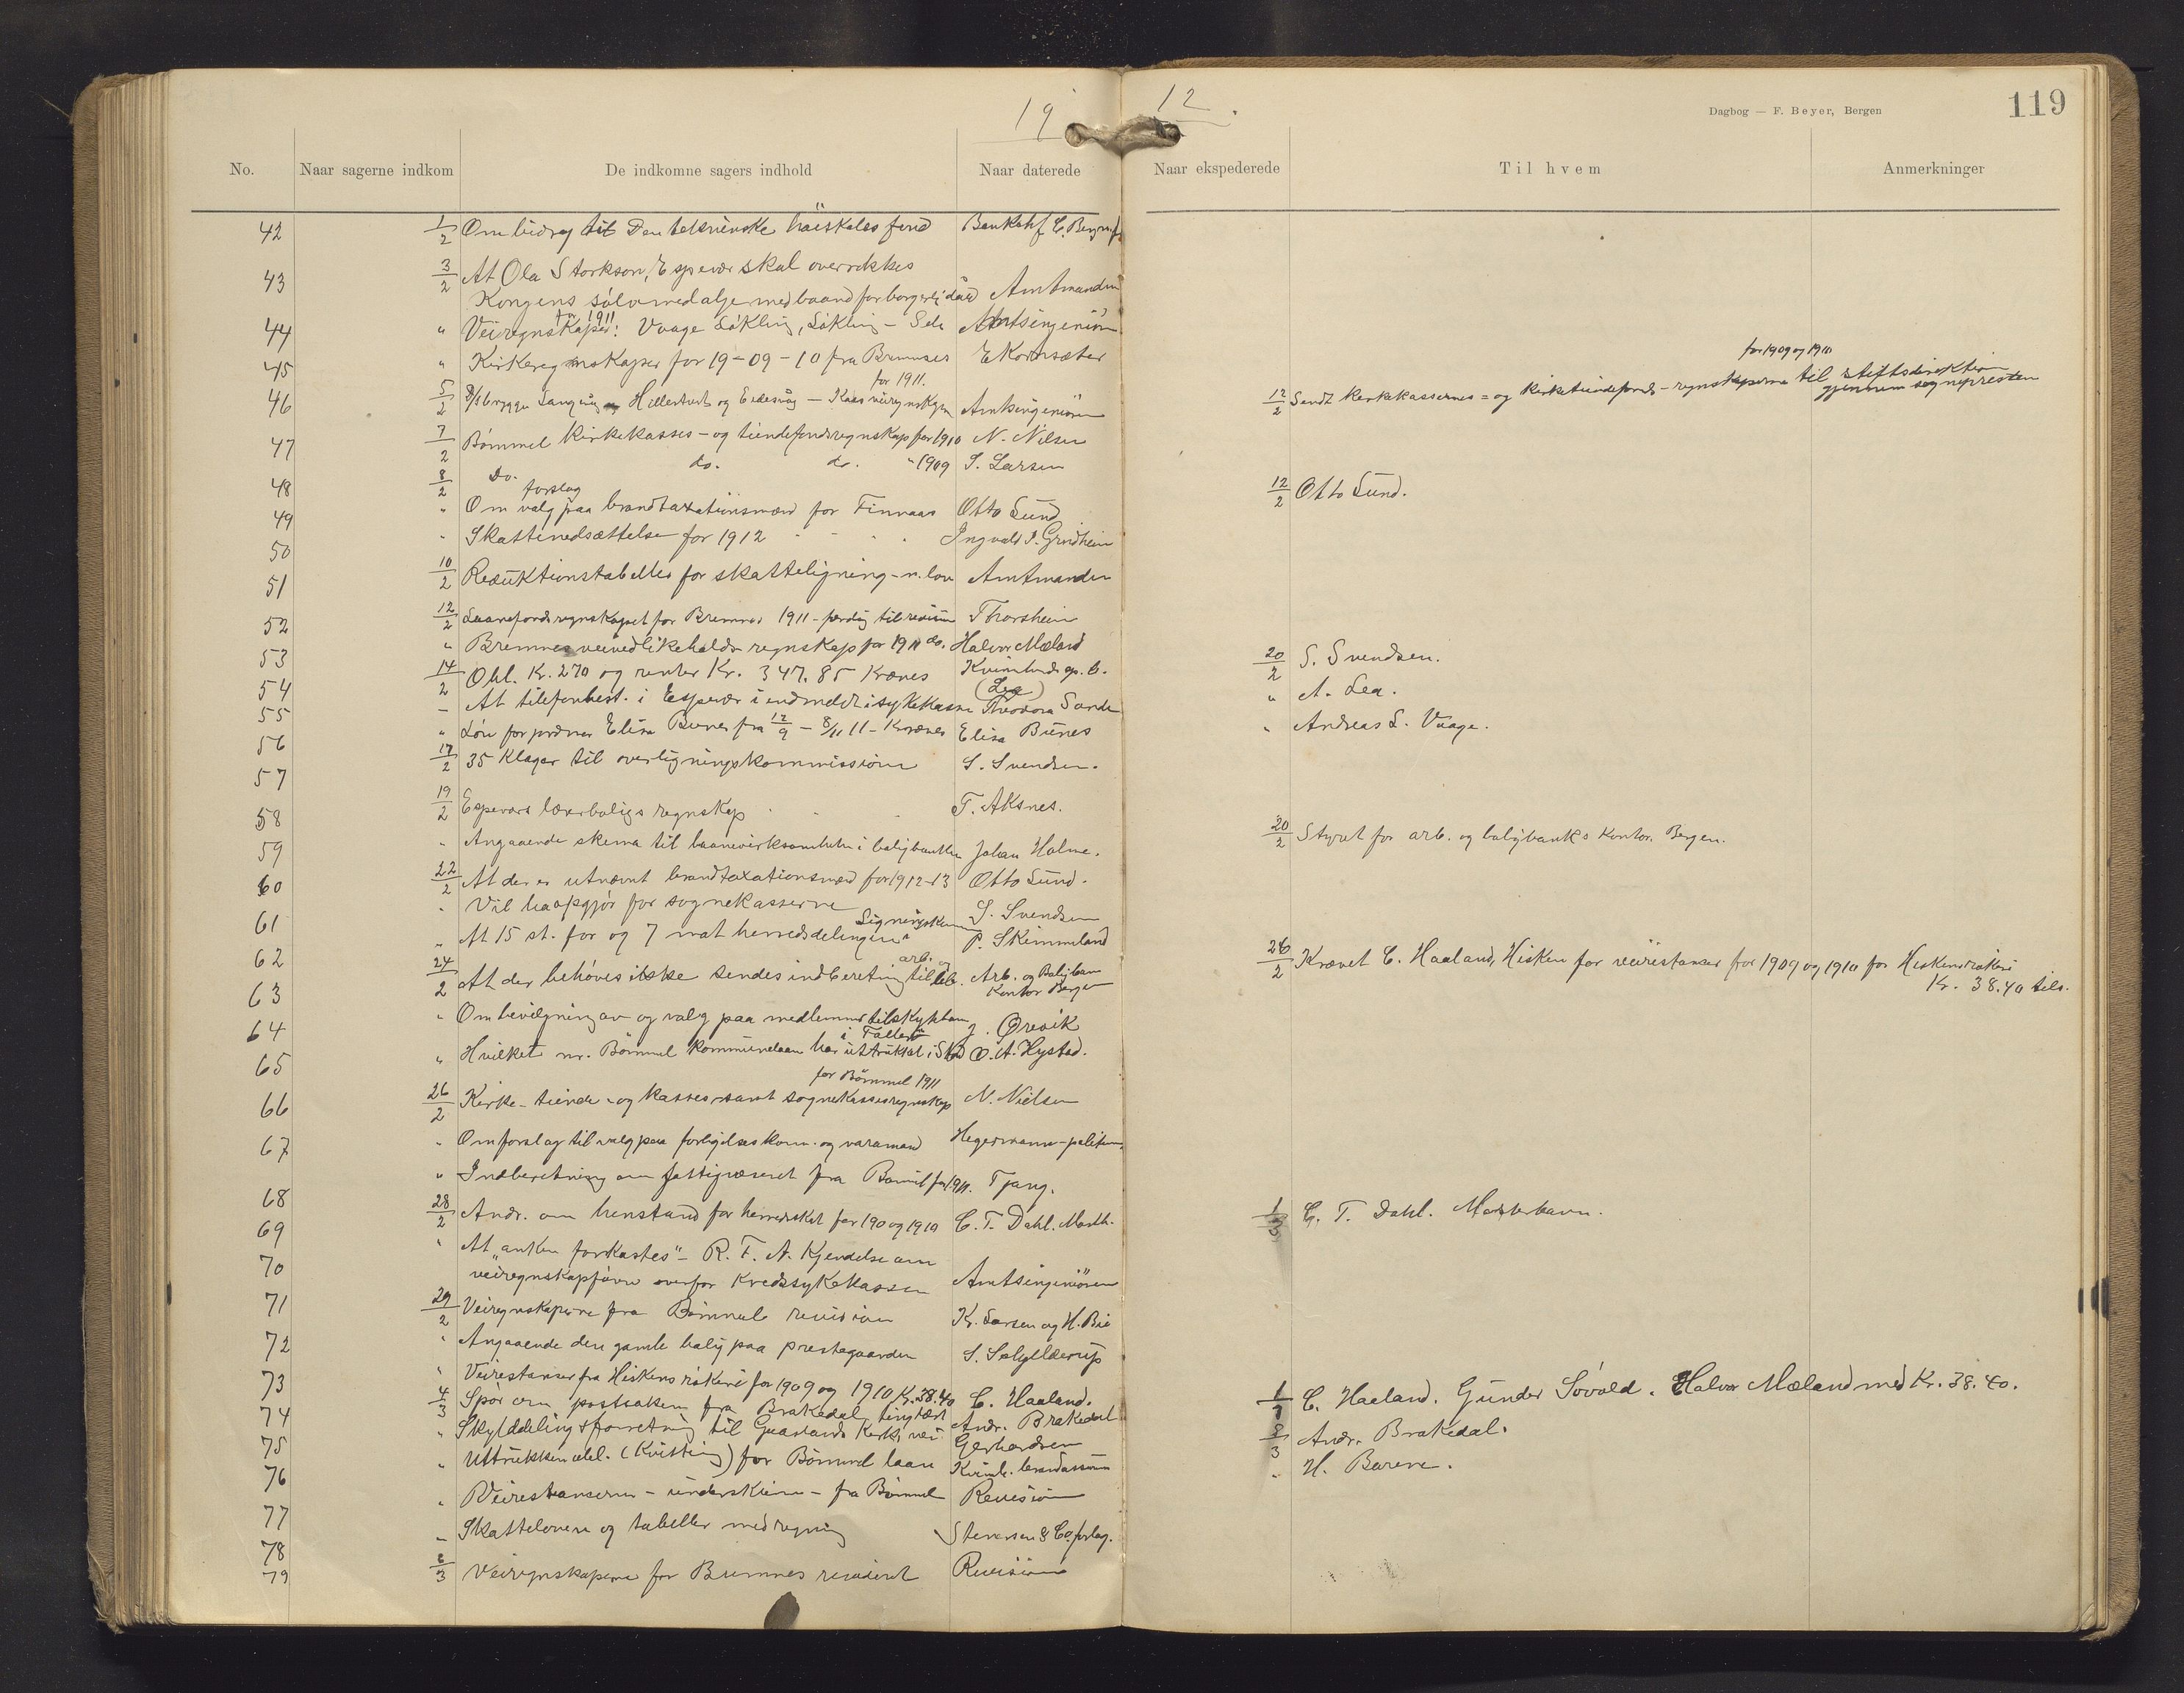 19 12
Dagbog — F. Beyer, Bergen
119
No. Naar sagerne indkom De indkomne sagers indhold Naar daterede Naar ekspederede Til hvem Anmerkninger
42 1/2 Om bidrag til Den tekniske høiskoles fond
43 3/2 At Ola Storkson, Espevær skal overrekkes
Kongens sølvmedalje med baand for borgerlig daad Amtmanden
44 " Veiregnskaper for 1911: Vaage Løkling, Løkling - Sele Amtsingeniøren
45 " Kirkeregnskaper for 19-09-10 fra Bremnes E Kornsæter
46 5/2 og Eidesvåg — for 1911. Amtsingeniøren
12/2 Sendt Kirkekassernes = og Kirketiendefonds - regnskaperne for 1909 og 1910 til stiftsdirektion
gjennem sognepresten
47 7/2 Bømmel Kirkekasses - og tiendefondsregnskap for 1910 N. Nilsen
48 8/2 Do. do. do. " 1909 S. Larsen
49 " Om forslag valg paa brandtaxationsmænd for Finnaas Otto Sund
12/2 Otto Sund.
50 " Skattenedsættelse for 1912 Ingvald
51 10/2 Reduktionstabeller for skatteligning - n. lov Amtmanden
52 12/2 Laanefondsregnskapet for Bremnes 1911 - færdig til revision Thorsheim
53 " Bremnes veivedlikeholds regnskap for 1911 do. Halvor Mæland
54 14/2 Obl. Kr. 270 og renter Kr. 347.85 kræves
(Lea)
20/2 S. Svendsen.
55 - At telefonbest. i Espevær indmeldt i sykekassen Theodora Sande
" A. Lea.
56 " Løn for Elisa Bunes fra 12/9 - 8/11 11 - kræves Elisa Bunes
" Andreas L. Vaage.
57 17/2 35 Klager til overligningskommissionen S. Svendsen.
58 19/2 Espeværs lærerboligs regnskap T. Aksnes.
59 " Angaaende skema til laanevirksomheten i boligbanken Johan Holme.
20/2 Styret for arb. og boligbanks Kontor. Bergen.
60 22/2 At der er utnævnt brandtaxationsmænd for 1912-13 Otto Sund.
61 " Vil ha opgjør for sognekasserne S. Svendsen
62 " At 15 st. for og 7 mot herredsdelingen P. Skimmeland
63 24/2 At der behøves ikke sendes indberetning til arb. og Arb. og Boligban
Kontor Bergen
26/2 Krævet C. Haaland, Hisken for veirestanser for 1909 og 1910 for Hiskens
Kr. 38.40 tils.
64 " Om bevilgning av og valg paa medlemmer J. Ørevik
65 " Hvilket nr. Bømmel kommunelaan har O. A. Hystad.
66 26/2 Kirke - tiende - og kasses samt sognekassesregnskap for Bømmel 1911 N. Nielsen
67 " Om forslag til valg paa forligelseskom. og varamænd Hegermann - politim.
68 " Indberetning om fattigvæsenet fra Bømmel for 1911. Tjang.
69 28/2 Andr. om henstand for herredsskat for 190 og 1910 C. T. Dahl. Mosth.
1/3 C. T. Dahl. Mosterhavn.
70 " At "anken forkastes" - R. T. A. Kjendelse om
overfor Kredssykekassen Amtsingeniøren
71 29/2 Veiregnskaperne fra Bømmel revision K. Larsen og H. Bie
72 " Angaaende den gamle bolig paa prestegaarden S. Schjelderup
73 " Veirestanser fra Hiskens for 1909 og 1910 Kr. 38.40 C. Haaland.
C. Haaland. Gunder Løvold. Halvor Mæland med Kr. 38.40.
74 4/3 Spør om fra Brakedal Andr. Brakedal
Andr. Brakedal.
75 " Skylddelingsforretning til Kirkevei Gerhardsen
" H. Barene.
76 " for Bømmel laan
77 " Veirestanserne - fra Bømmel Revision
78 " Skattelovene og tabeller med regning Stenersen & Co. forlag.
79 8/3 Veiregnskaperne for Bremnes revideret Revision